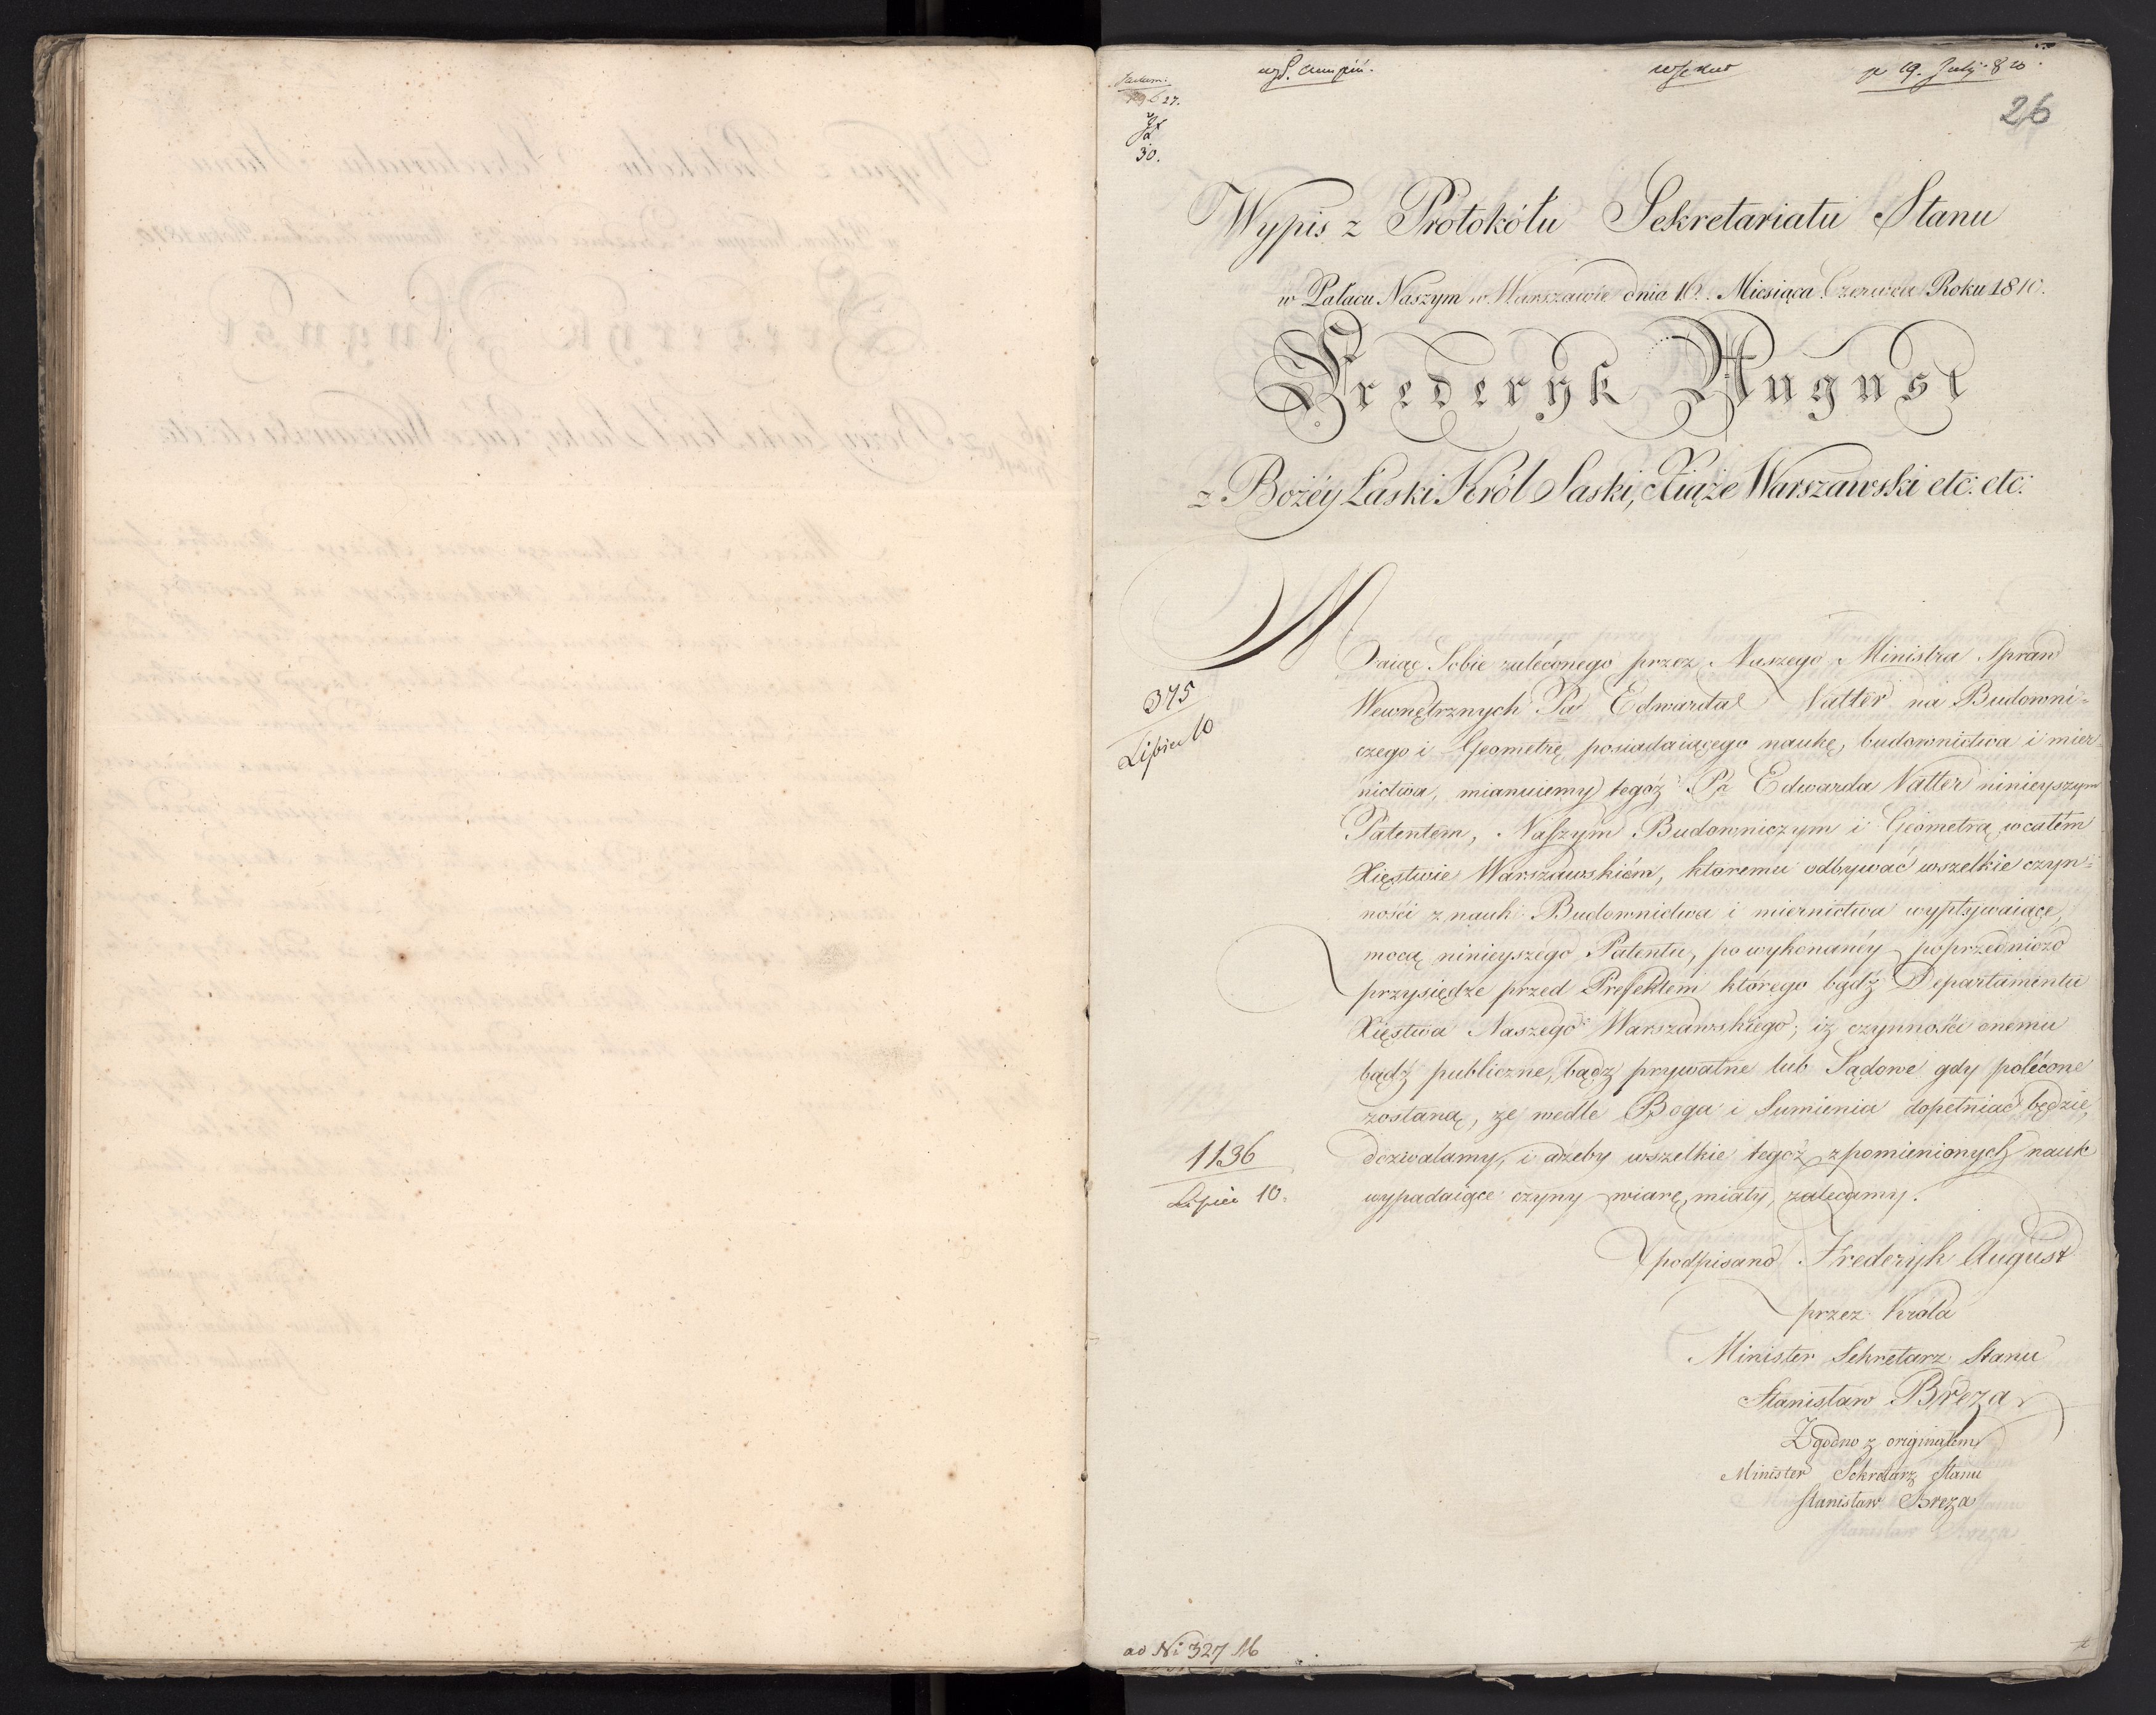 26
30.
Wypis z Protokółu Sekretariatu Stanu
w Pałacu Naszym w Warszawie dnia 16. Miesiąca Czerwca Roku 1810.
Fryderyk August
z Bożéy Łaski Król Saski, Xiąże Warszawski etc: etc:
Maiąc Sobie zaleconego przez Naszego Ministra Spraw
375
Lipiec 10
Wewnętrznych Pa Edwarda Natter na Budowni=
czego i Geometrę posiadaiącego naukę, budownictwa i mier=
nictwa, mianuiemy tegoż Pa Edwarda Natter ninieyszym
Patentem, Naszym Budowniczym i Geometrą w całém
Xięstwie Warszawskiém, ktoremu odbywać wszelkie czyn=
ności z nauk Budownictwa i miernictwa wypływaiące,
mocą ninieyszégo Patentu, po wykonanéy poprzedniczo
przysiędze przed Prefektem którego bądź Departamentu
Xięstwa Naszego Warszawskiego; iż czynności onemu
bądź publiczne, bądź prywatne lub Sądowe gdy polécone
zostaną, że wedle Boga i Sumienia dopełniać będzie,
1136
Lipiec 10.
dozwalamy, i ażeby wszelkie tegoż z pomienionych nauk
wypadaiące czyny wiarę miały, zalecamy.
podpisano Frederyk August
przez Króla
Minister Sekretarz Stanu
Stanisław Breza
Zgodno z originałem
Minister Sekretarz Stanu
Stanisław Breza
ad Nr 327 16